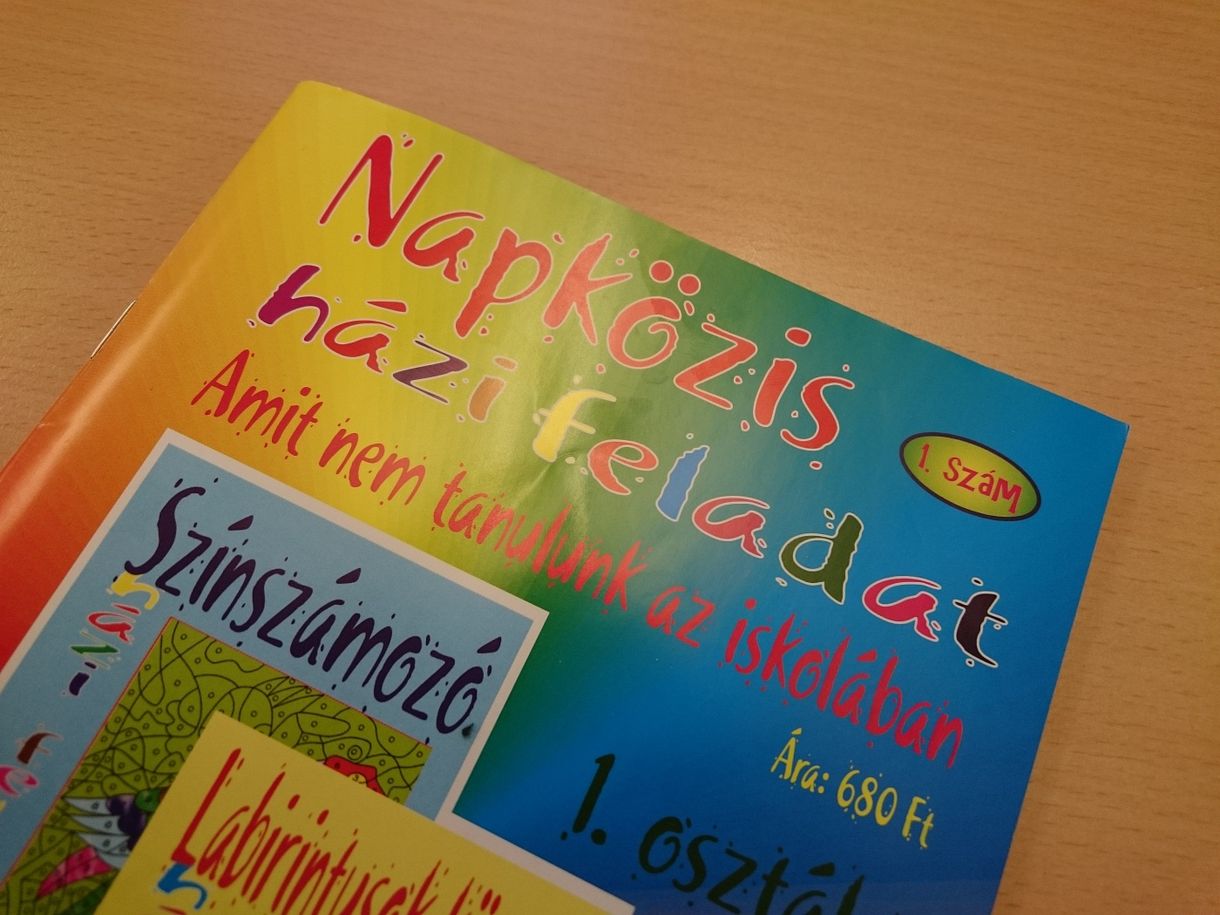 Napközis
házi feladat
1. szám
Amit nem tanulunk az iskolában
Ára: 680 Ft
1.
Színszámozó
házi
Labirintusok